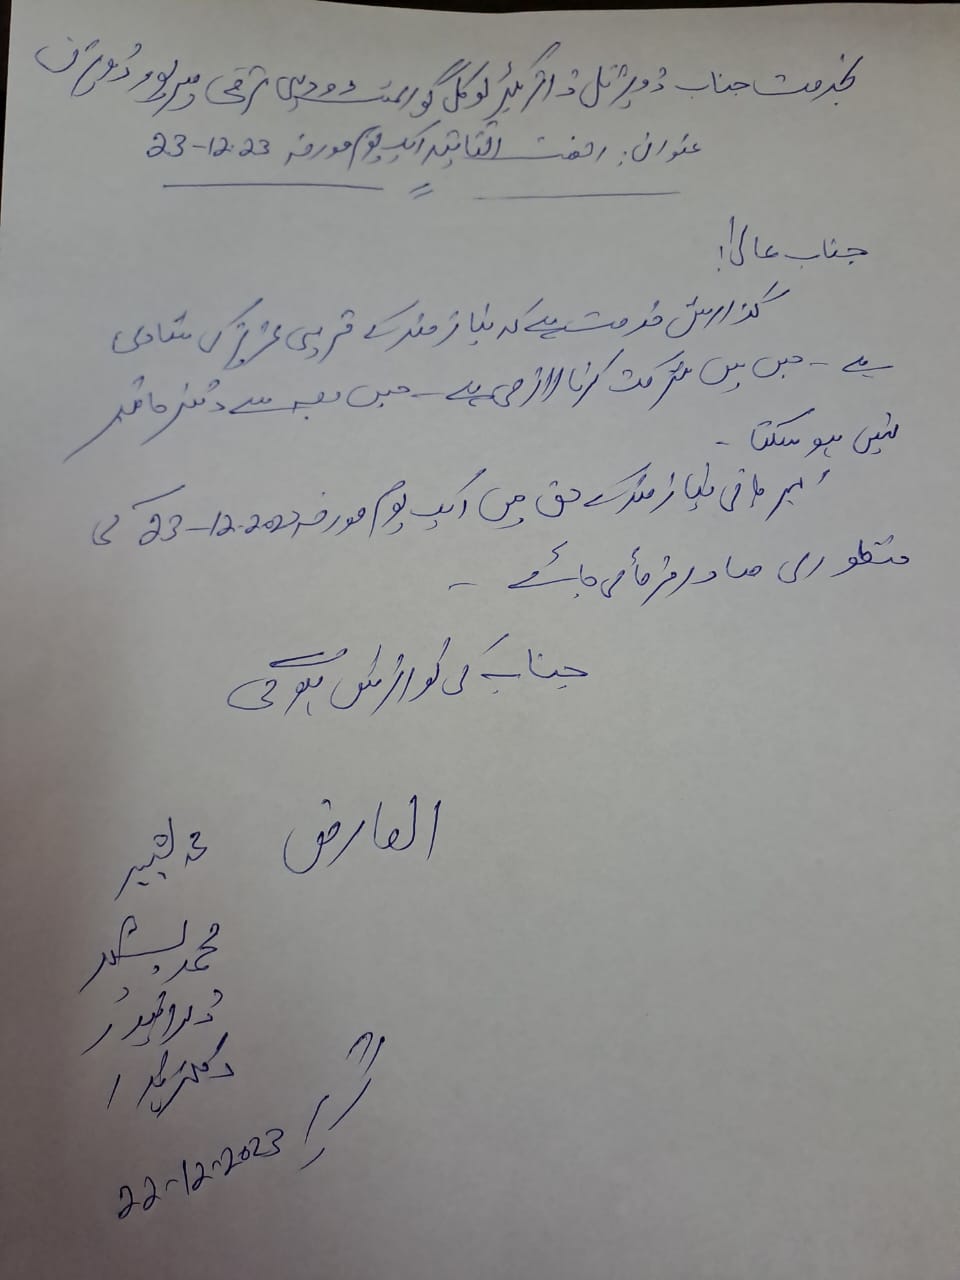 بخدمت جناب ڈویژنل ڈائریکٹر لوکل گورنمنٹ و دیہی ترقی میرپور ڈویژن
عنوان: رخصت اتفاقیہ ایک یوم مورخہ 23-12-23
جناب عالی!
گزارش خدمت ہے کہ نیاز مند کے قریبی عزیز کی شادی
ہے ۔ جس میں شرکت کرنا لازمی ہے ۔ جس وجہ سے دفتر حاضر
نہیں ہو سکتا ۔
نیاز مند کے حق میں ایک یوم مورخہ 23-12-2023 کی
منظوری صادر فرمائی جائے ۔
جناب کی نوازش ہو گی
العارض
محمد بشیر
محمد بشیر
ڈرائیور
دفتر ہذا
22-12-2023